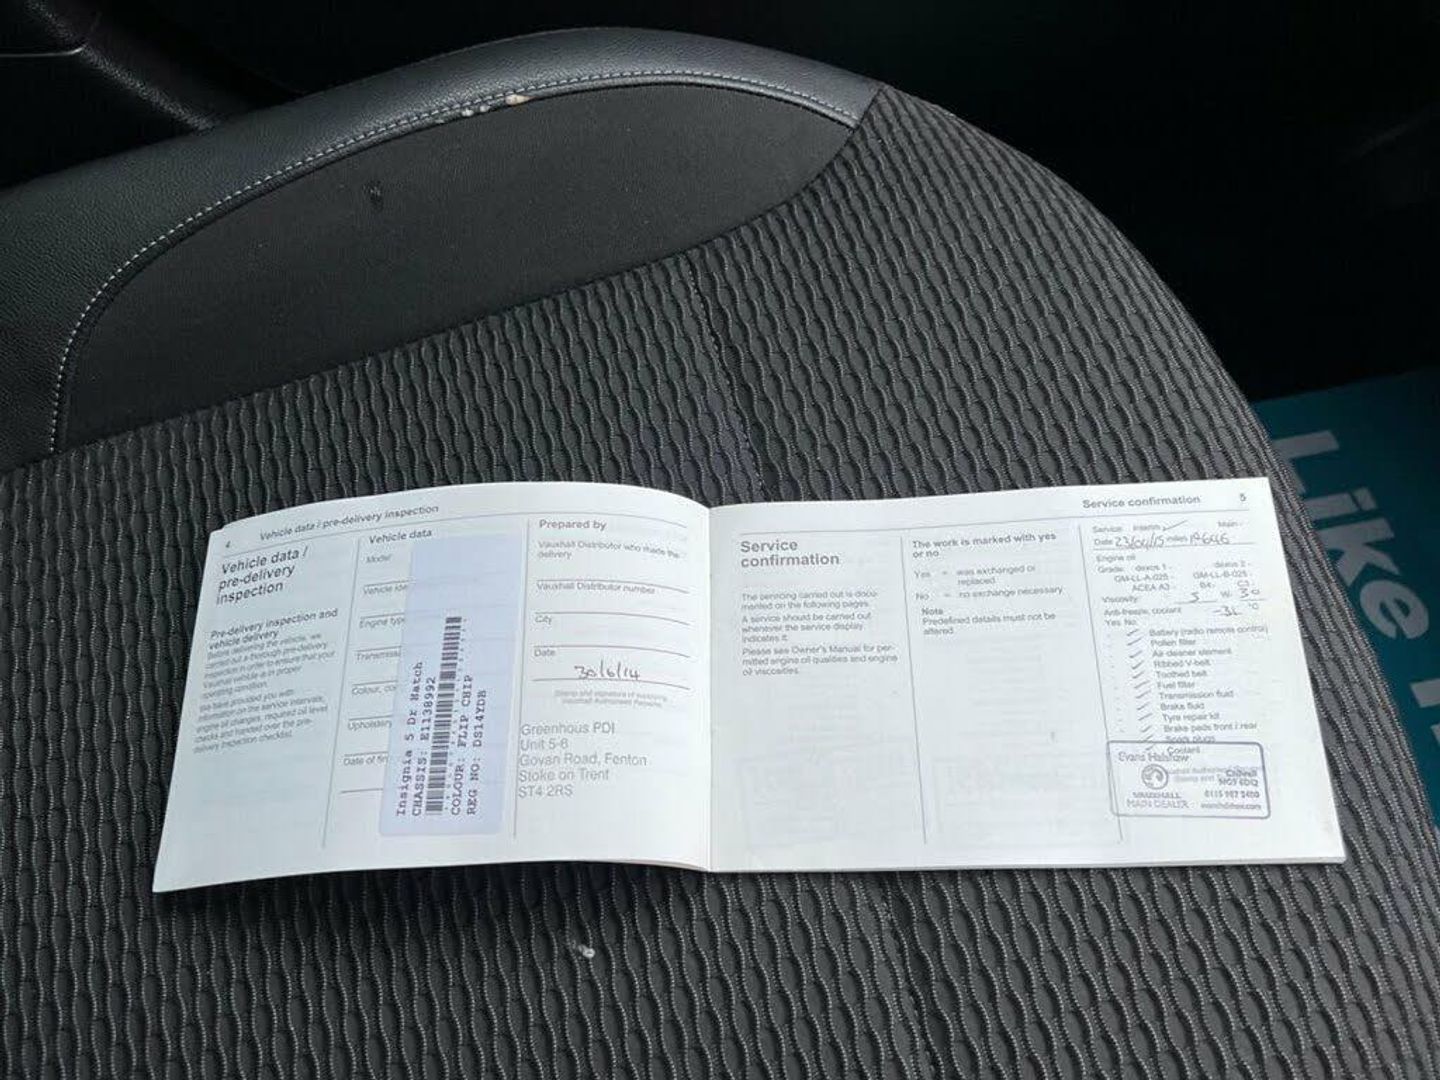 4 Vehicle data / pre-delivery inspection
Vehicle data /
pre-delivery
inspection
Pre-delivery inspection and
vehicle delivery
Before delivering the vehicle, we
carried out a thorough pre-delivery
inspection in order to ensure that your
Vauxhall vehicle is in proper
operating condition.
We have provided you with
information on the service intervals,
engine oil changes, required oil level
checks and handed over the pre-
delivery inspection checklist.
Vehicle data
Model
Vehicle ide
Engine type
Transmiss
Colour, co
Upholstery
Date of fir
Insignia 5 Dr Hatch
CHASSIS: E1138992
COLOUR: FLIP CHIP
REG NO: DS14YDB
Prepared by
Vauxhall Distributor who made the
delivery
Vauxhall Distributor number
City
Date
30/6/14
Stamp and signature of supplying
Vauxhall Authorised Repairer
Greenhous PDI
Unit 5-6
Govan Road, Fenton
Stoke on Trent
ST4 2RS
Service confirmation 5
Service
confirmation
The servicing carried out is docu-
mented on the following pages.
A service should be carried out
whenever the service display
indicates it.
Please see Owner's Manual for per-
mitted engine oil qualities and engine
oil viscosities.
The work is marked with yes
or no
Yes = was exchanged or
replaced
No = no exchange necessary
Note
Predefined details must not be
altered.
Service: Interim Main
Date miles
Engine oil
Grade: dexos 1 - dexos 2 -
GM-LL-A-025 - GM-LL-B-025 -
ACEA A3 B4- C3
Viscosity: 5 W: 30
Anti-freeze, coolant °C
Yes No
Battery (radio remote control)
Pollen filter
Air cleaner element
Ribbed V-belt
Toothed belt
Fuel filter
Transmission fluid
Brake fluid
Tyre repair kit
Brake pads front / rear
Spark plugs
Coolant
Evans Halshaw
Chilwell
NG9 6DQ
VAUXHALL
MAIN DEALER
Like